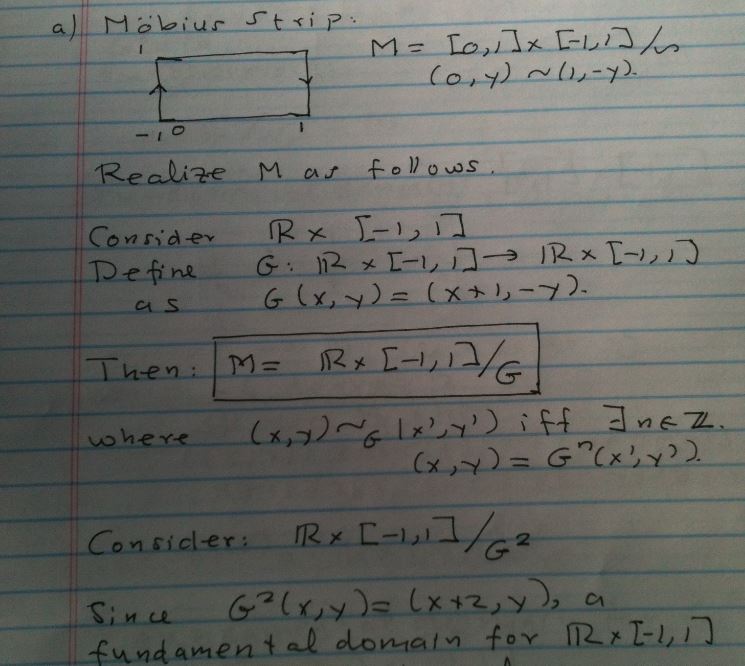 a) Möbius Strip:
1
M = [0,1] x [-1,1]/~
(0,y) ~ (1,-y).
-1 0 1
Realize M as follows.
Consider ℝ x [-1,1]
Define G: ℝ x [-1,1] → ℝ x [-1,1]
as G(x,y) = (x+1,-y).
Then: M = ℝ x [-1,1]/G
where (x,y) ~G (x',y') iff ∃ n ∈ ℤ.
(x,y) = Gⁿ(x',y').
Consider: ℝ x [-1,1]/G²
Since G²(x,y) = (x+2,y), a
fundamental domain for ℝ x [-1,1]